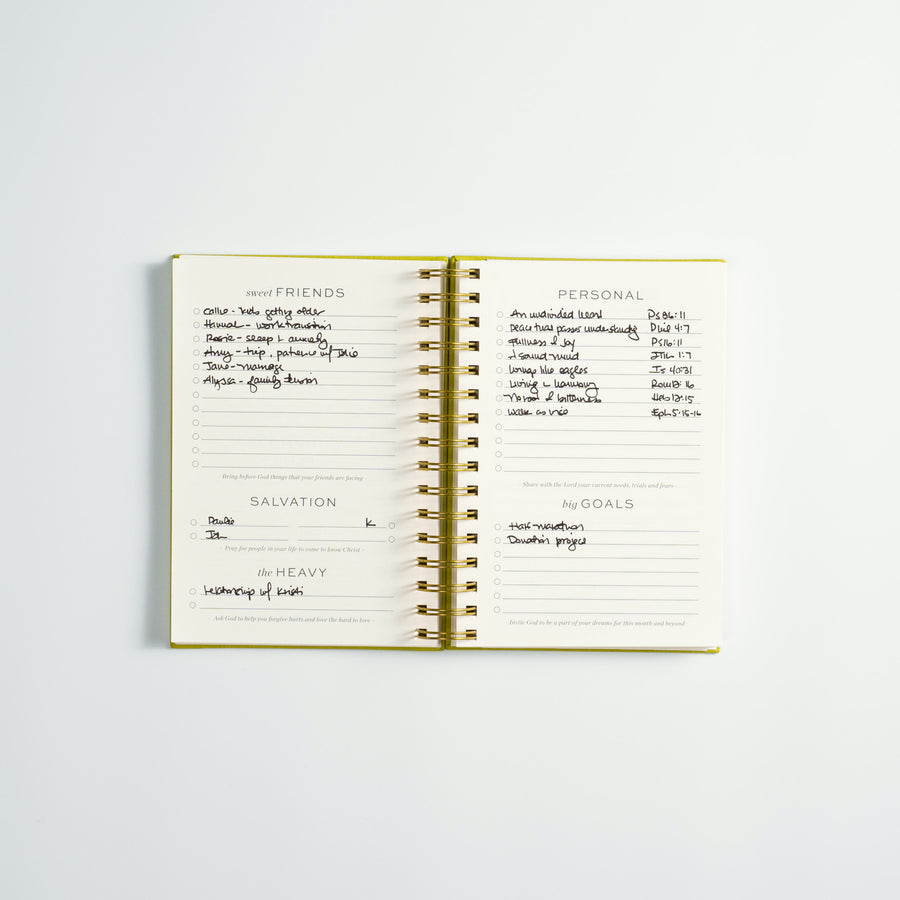 sweet FRIENDS
Callie - kids getting older
Hannah - work transition
Rosie - sleep + anxiety
Amy - trip, patience w/ Josie
Jane - marriage
Alyssa - family tension
Bring before God things that your friends are facing
SALVATION
Paulie K
Jen
- Pray for people in your life to come to know Christ -
the HEAVY
relationship w/ Kristi
Ask God to help you forgive hurts and love the hard to love
PERSONAL
An undivided heart Ps 86:11
peace that passes understanding Phil 4:7
Fullness of joy Ps 16:11
A sound mind 1:7
wings like eagles Is 40:31
Living in harmony Rom 12:16
No root of bitterness Heb 12:15
walk as wise Eph 5:15-16
Share with the Lord your current needs, trials and fears
big GOALS
Half-marathon
Donation project
Invite God to be a part of your dreams for this month and beyond